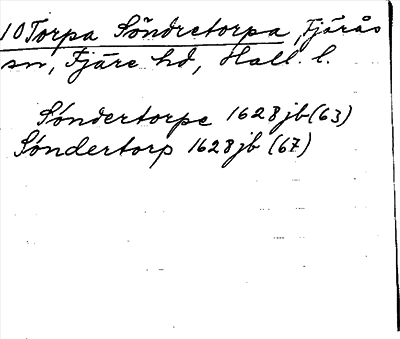 10 Torpa Söndretorpa, Fjärås
sn, Fjäre hd, Hall. l.
Søndertorpe 1628 jb (63)
Søndertorp 1628 jb (67)